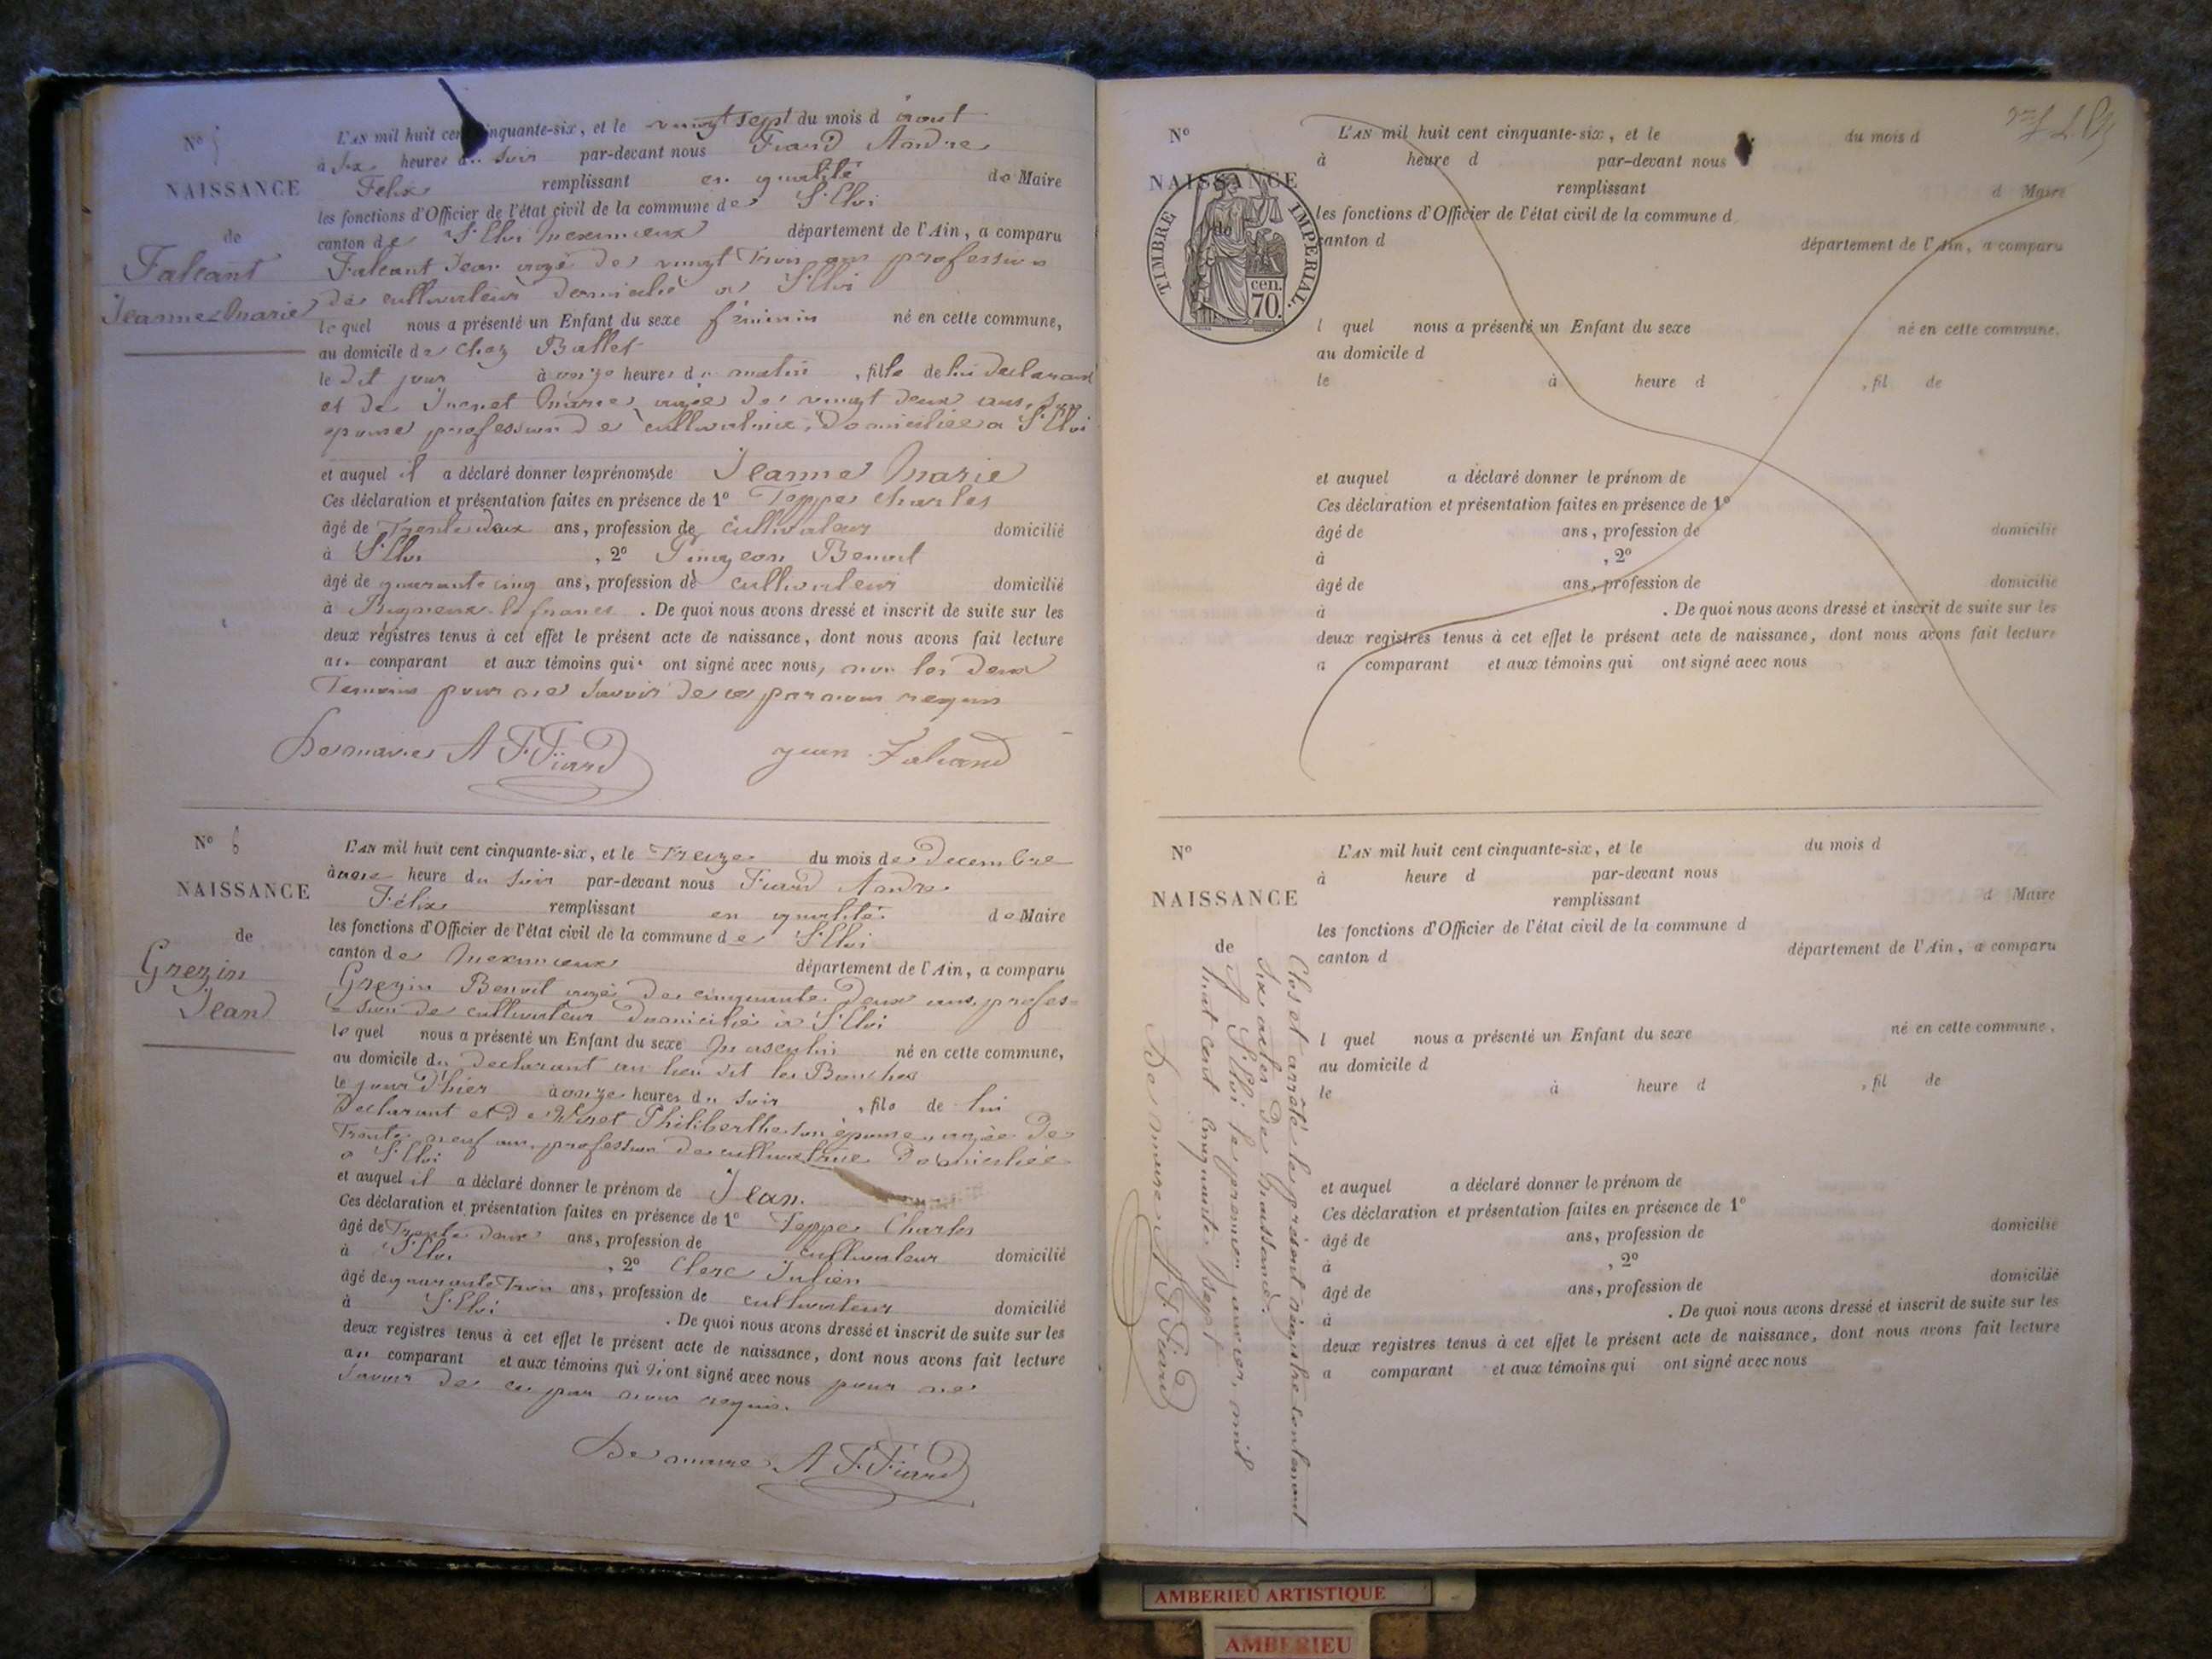 N° 5
NAISSANCE
de
Falcant
Jeanne Marie
L'AN mil huit cent cinquante-six, et le vingt sept du mois d'aout
à six heures du soir par-devant nous Fiard André
Félix remplissant en qualité de Maire
les fonctions d'Officier de l'état civil de la commune de St Eloi
canton de St Eloi Meximieux département de l'Ain, a comparu
Falcant Jean agé de vingt trois ans profession
de cultivateur domicilié a St Eloi
lequel nous a présenté un Enfant du sexe féminin né en cette commune,
au domicile de chez Ballet
le dit jour à onze heures du matin, fille de lui déclarant
et de Marie, agée de vingt deux ans, son
épouse profession de cultivatrice, domiciliée a St Eloi
et auquel il a déclaré donner les prénoms de Jeanne Marie
Ces déclaration et présentation faites en présence de 1° Teppe Charles
âgé de Trente deux ans, profession de cultivateur domicilié
à St Eloi, 2° Pingeon Benoit
âgé de quarante cinq ans, profession de cultivateur domicilié
à Rigneux le franc. De quoi nous avons dressé et inscrit de suite sur les
deux régistres tenus à cet effet le présent acte de naissance, dont nous avons fait lecture
au comparant et aux témoins qui ont signé avec nous, non les deux
Temoins pour ne savoir de ce par nous requis
Le maire A F Fiard jean Falcand
N° 6
NAISSANCE
de
Grezin
Jean
L'AN mil huit cent cinquante-six, et le Treize du mois de Decembre
à une heure du soir par-devant nous Fiard André
Félix remplissant en qualité de Maire
les fonctions d'Officier de l'état civil de la commune de St Eloi
canton de Meximieux département de l'Ain, a comparu
Grezin Benoit agé de cinquante deux ans, profes-
sion de cultivateur domicilié à St Eloi
lequel nous a présenté un Enfant du sexe Masculin né en cette commune,
au domicile du Declarant au lieu dit les Bouches
le jour d'hier à onze heures du soir, fils de lui
Declarant et de Philiberthe son épouse, agée de
Trente neuf ans, profession de cultivatrice domiciliée
a St Eloi
et auquel il a déclaré donner le prénom de Jean.
Ces déclaration et présentation faites en présence de 1° Teppe Charles
âgé de Trente deux ans, profession de cultivateur domicilié
à St Eloi, 2° Clerc Julien
âgé de quarante Trois ans, profession de cultivateur domicilié
à St Eloi. De quoi nous avons dressé et inscrit de suite sur les
deux registres tenus à cet effet le présent acte de naissance, dont nous avons fait lecture
au comparant et aux témoins qui n'ont signé avec nous pour ne
savoir de ce par nous requis.
Le maire A F Fiard
N°
NAISSANCE
de
TIMBRE IMPERIAL.
70 cen.
L'AN mil huit cent cinquante-six, et le du mois d
à heure d par-devant nous
remplissant d Maire
les fonctions d'Officier de l'état civil de la commune d
canton d département de l'Ain, a comparu
l quel nous a présenté un Enfant du sexe né en cette commune.
au domicile d
le à heure d , fil de
et auquel a déclaré donner le prénom de
Ces déclaration et présentation faites en présence de 1°
âgé de ans, profession de domicilié
à , 2°
âgé de ans, profession de domicilié
à . De quoi nous avons dressé et inscrit de suite sur les
deux registres tenus à cet effet le présent acte de naissance, dont nous avons fait lecture
a comparant et aux témoins qui ont signé avec nous
N°
NAISSANCE
de
L'AN mil huit cent cinquante-six, et le du mois d
à heure d par-devant nous
remplissant d Maire
les fonctions d'Officier de l'état civil de la commune d
canton d département de l'Ain, a comparu
l quel nous a présenté un Enfant du sexe né en cette commune,
au domicile d
le à heure d , fil de
et auquel a déclaré donner le prénom de
Ces déclaration et présentation faites en présence de 1°
âgé de ans, profession de domicilié
à , 2°
âgé de ans, profession de domicilié
à . De quoi nous avons dressé et inscrit de suite sur les
deux registres tenus à cet effet le présent acte de naissance, dont nous avons fait lecture
a comparant et aux témoins qui ont signé avec nous
Clos et arrêté le présent régistre contenant
six actes de Naissance.
A St Eloi le premier janvier, mil
huit cent cinquante sept
Le maire A F Fiard
AMBERIEU ARTISTIQUE
AMBERIEU